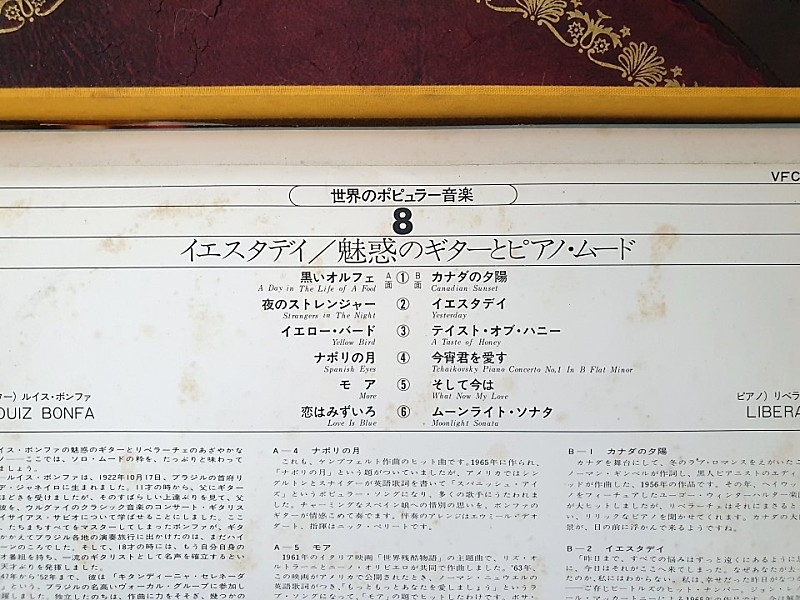 VFC
世界のポピュラー音楽
8
イエスタデイ/魅惑のギターとピアノ・ムード
A面 ① B面
黒いオルフェ カナダの夕陽
A Day in The Life of A Fool Canadian Sunset
夜のストレンジャー ② イエスタデイ
Strangers in The Night Yesterday
イエロー・バード ③ テイスト・オブ・ハニー
Yellow Bird A Taste of Honey
ナポリの月 ④ 今宵君を愛す
Spanish Eyes Tchaikovsky Piano Concerto No.1 In B Flat Minor
モア ⑤ そして今は
More What Now My Love
恋はみずいろ ⑥ ムーンライト・ソナタ
Love Is Blue Moonlight Sonata
ター) ルイス・ボンファ
OUIZ BONFA
ピアノ) リベラ
LIBERA
イス・ボンファの魅惑のギターとリベラーチェのあざやかな
ノ――ここでは、ソロ・ムードの粋を、たっぷりと味わって
ましょう。
ルイス・ボンファは、1922年10月17日、ブラジルの首府リ
デ・ジャネイロに生まれました。11才の時から、父にギター
ほどきを受けましたが、そのすばらしい上達ぶりを見て、父
彼を、ウルグァイのクラシック音楽のコンサート・ギタリス
イサイアス・サビオについて学ばせることにしました。ここ
、たちまちすべてをマスターしてしまったボンファが、ギタ
かかえてブラジル各地の演奏旅行に出かけたのは、まだハイ
ーンのころでした。そして、18才の時には、もう自分自身の
オ番組を持ち、一流のギタリストとして名声を確立するとい
天才ぶりを発揮しました。
47年から'52年まで、彼は「キタンディーニャ・セレネーダ
」という、ブラジルの名高いヴォーカル・グループに参加し
A－4 ナポリの月
これも、ケンプフェルト作曲のヒット曲です。1965年に作られ、
「ナポリの月」という題がついていましたが、アメリカではシン
グルトンとスナイダーが英語歌詞を書いて「スパニッシュ・アイ
ズ」というポピュラー・ソングになり、多くの歌手にうたわれま
した。チャーミングなスペイン娘への惜別の思いを、ボンファの
ギターが情感こめて奏でます。伴奏のアレンジはエウミール・デオ
ダート、指揮はニック・ペリートです。
A－5 モア
1961年のイタリア映画「世界残酷物語」の主題曲で、リズ・オ
ルトラーニとニーノ・オリビエロが共同で作曲しました。'63年、
この映画がアメリカで公開されたとき、ノーマン・ニュウエルの
英語歌詞がつき、「もっともっとあなたを愛しましょう」というラ
B－1 カナダの夕陽
カナダを舞台にして、冬のラブ・ロマンスをえがいたこ
ノーマン・ギンベルが作詞し、黒人ピアニストのエディ
ッドが作曲した、1956年の作品です。その年、ヘイウッ
ノをフィーチュアしたユーゴー・ウィンターハルター楽団
が大ヒットしましたが、リベラーチェはそれにまさると
い、リリックなピアノを聞かせてくれます。カナダの大自
景が、目の前に浮かんで来るようですね。
B－2 イエスタデイ